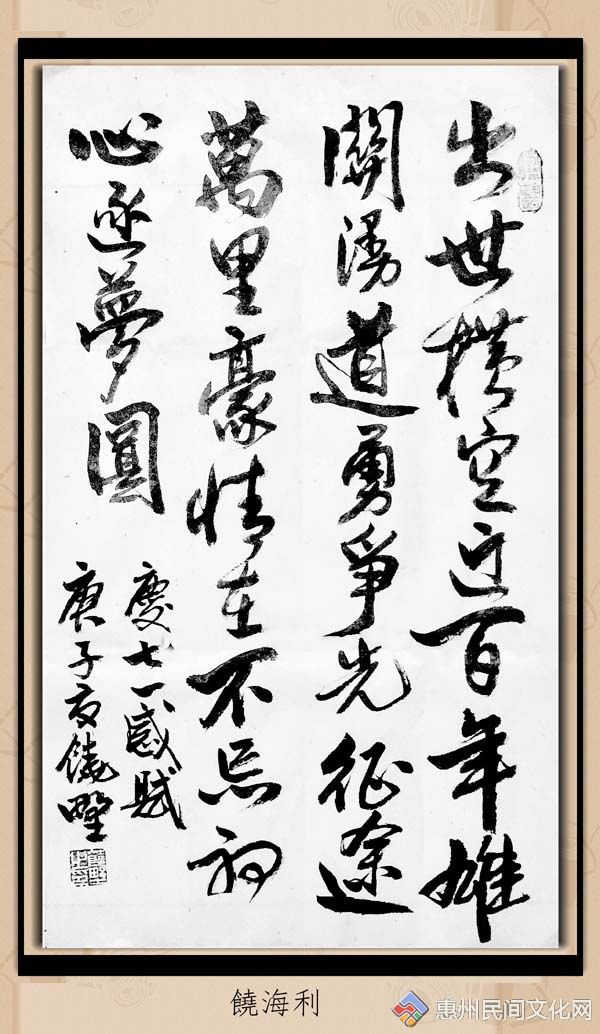 出世横空近百年雄
關漫道勇爭先征途
萬里豪情在不忘初
心逐夢圓
慶七一感賦
庚子夏饒野
饒海利
惠州民间文化网